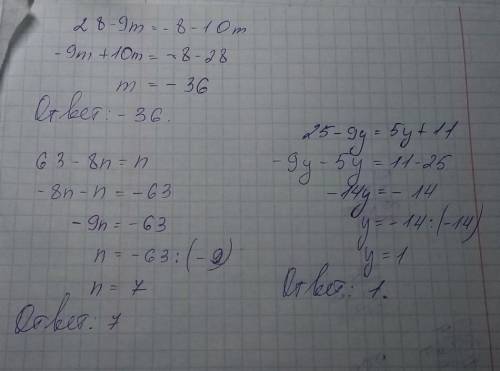 28-9m=-8-10m
-9m+10m=-8-28
m=-36
Ответ: -36.
63-8n=n
-8n-n=-63
-9n=-63
n=-63:(-9)
n=7
Ответ: 7
25-9y=5y+11
-9y-5y=11-25
-14y=-14
y=-14:(-14)
y=1
Ответ: 1.